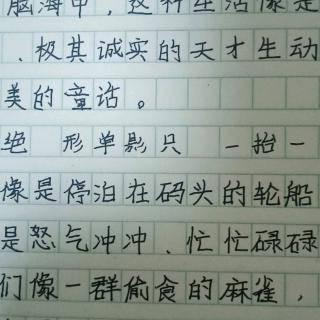 脑海中，这种生活像是
、极其诚实的天才生动
美的童话。
绝 形单影只 一抬一
像是停泊在码头的轮船
是怒气冲冲、忙忙碌碌
们像一群偷食的麻雀，